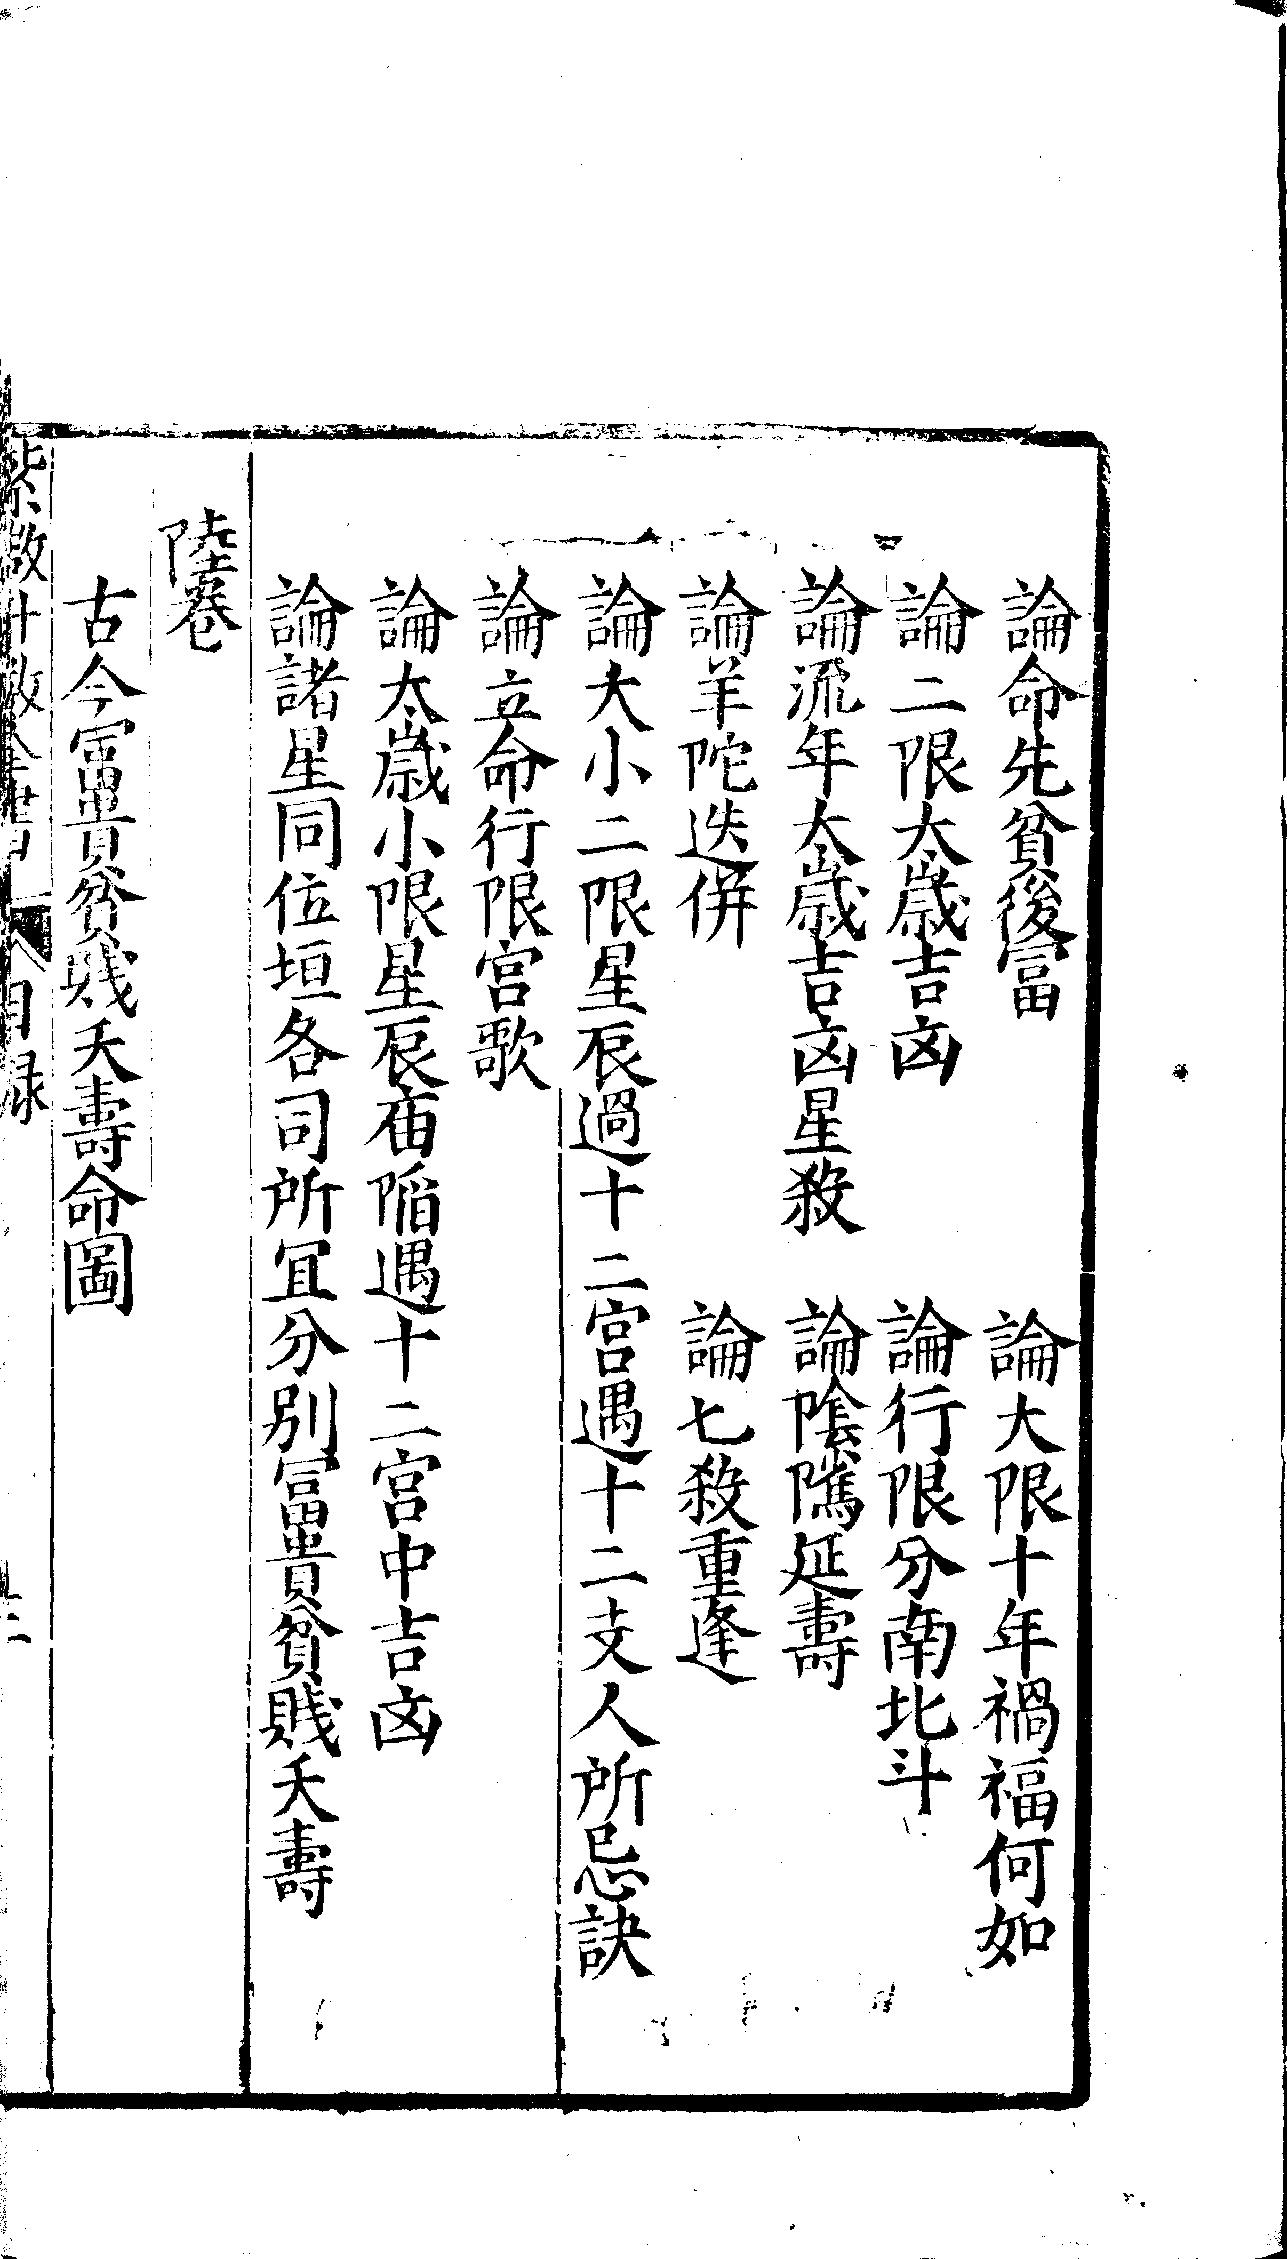 論命先貧後冨　論大限十年禍福何如
論二限太歲吉凶　論行限分南北斗
論流年太歲吉凶星殺　論陰隲延壽
論羊陀迭併　論七殺重逢
論大小二限星辰過十二宮遇十二支人所忌訣
論立命行限宮歌
論太歲小限星辰庙陷遇十二宮中吉凶
論諸星同位垣各司所冝分別冨貴貧賤夭壽
陸卷
古今富貴貧賤夭壽命圖
紫微斗数全書　目録